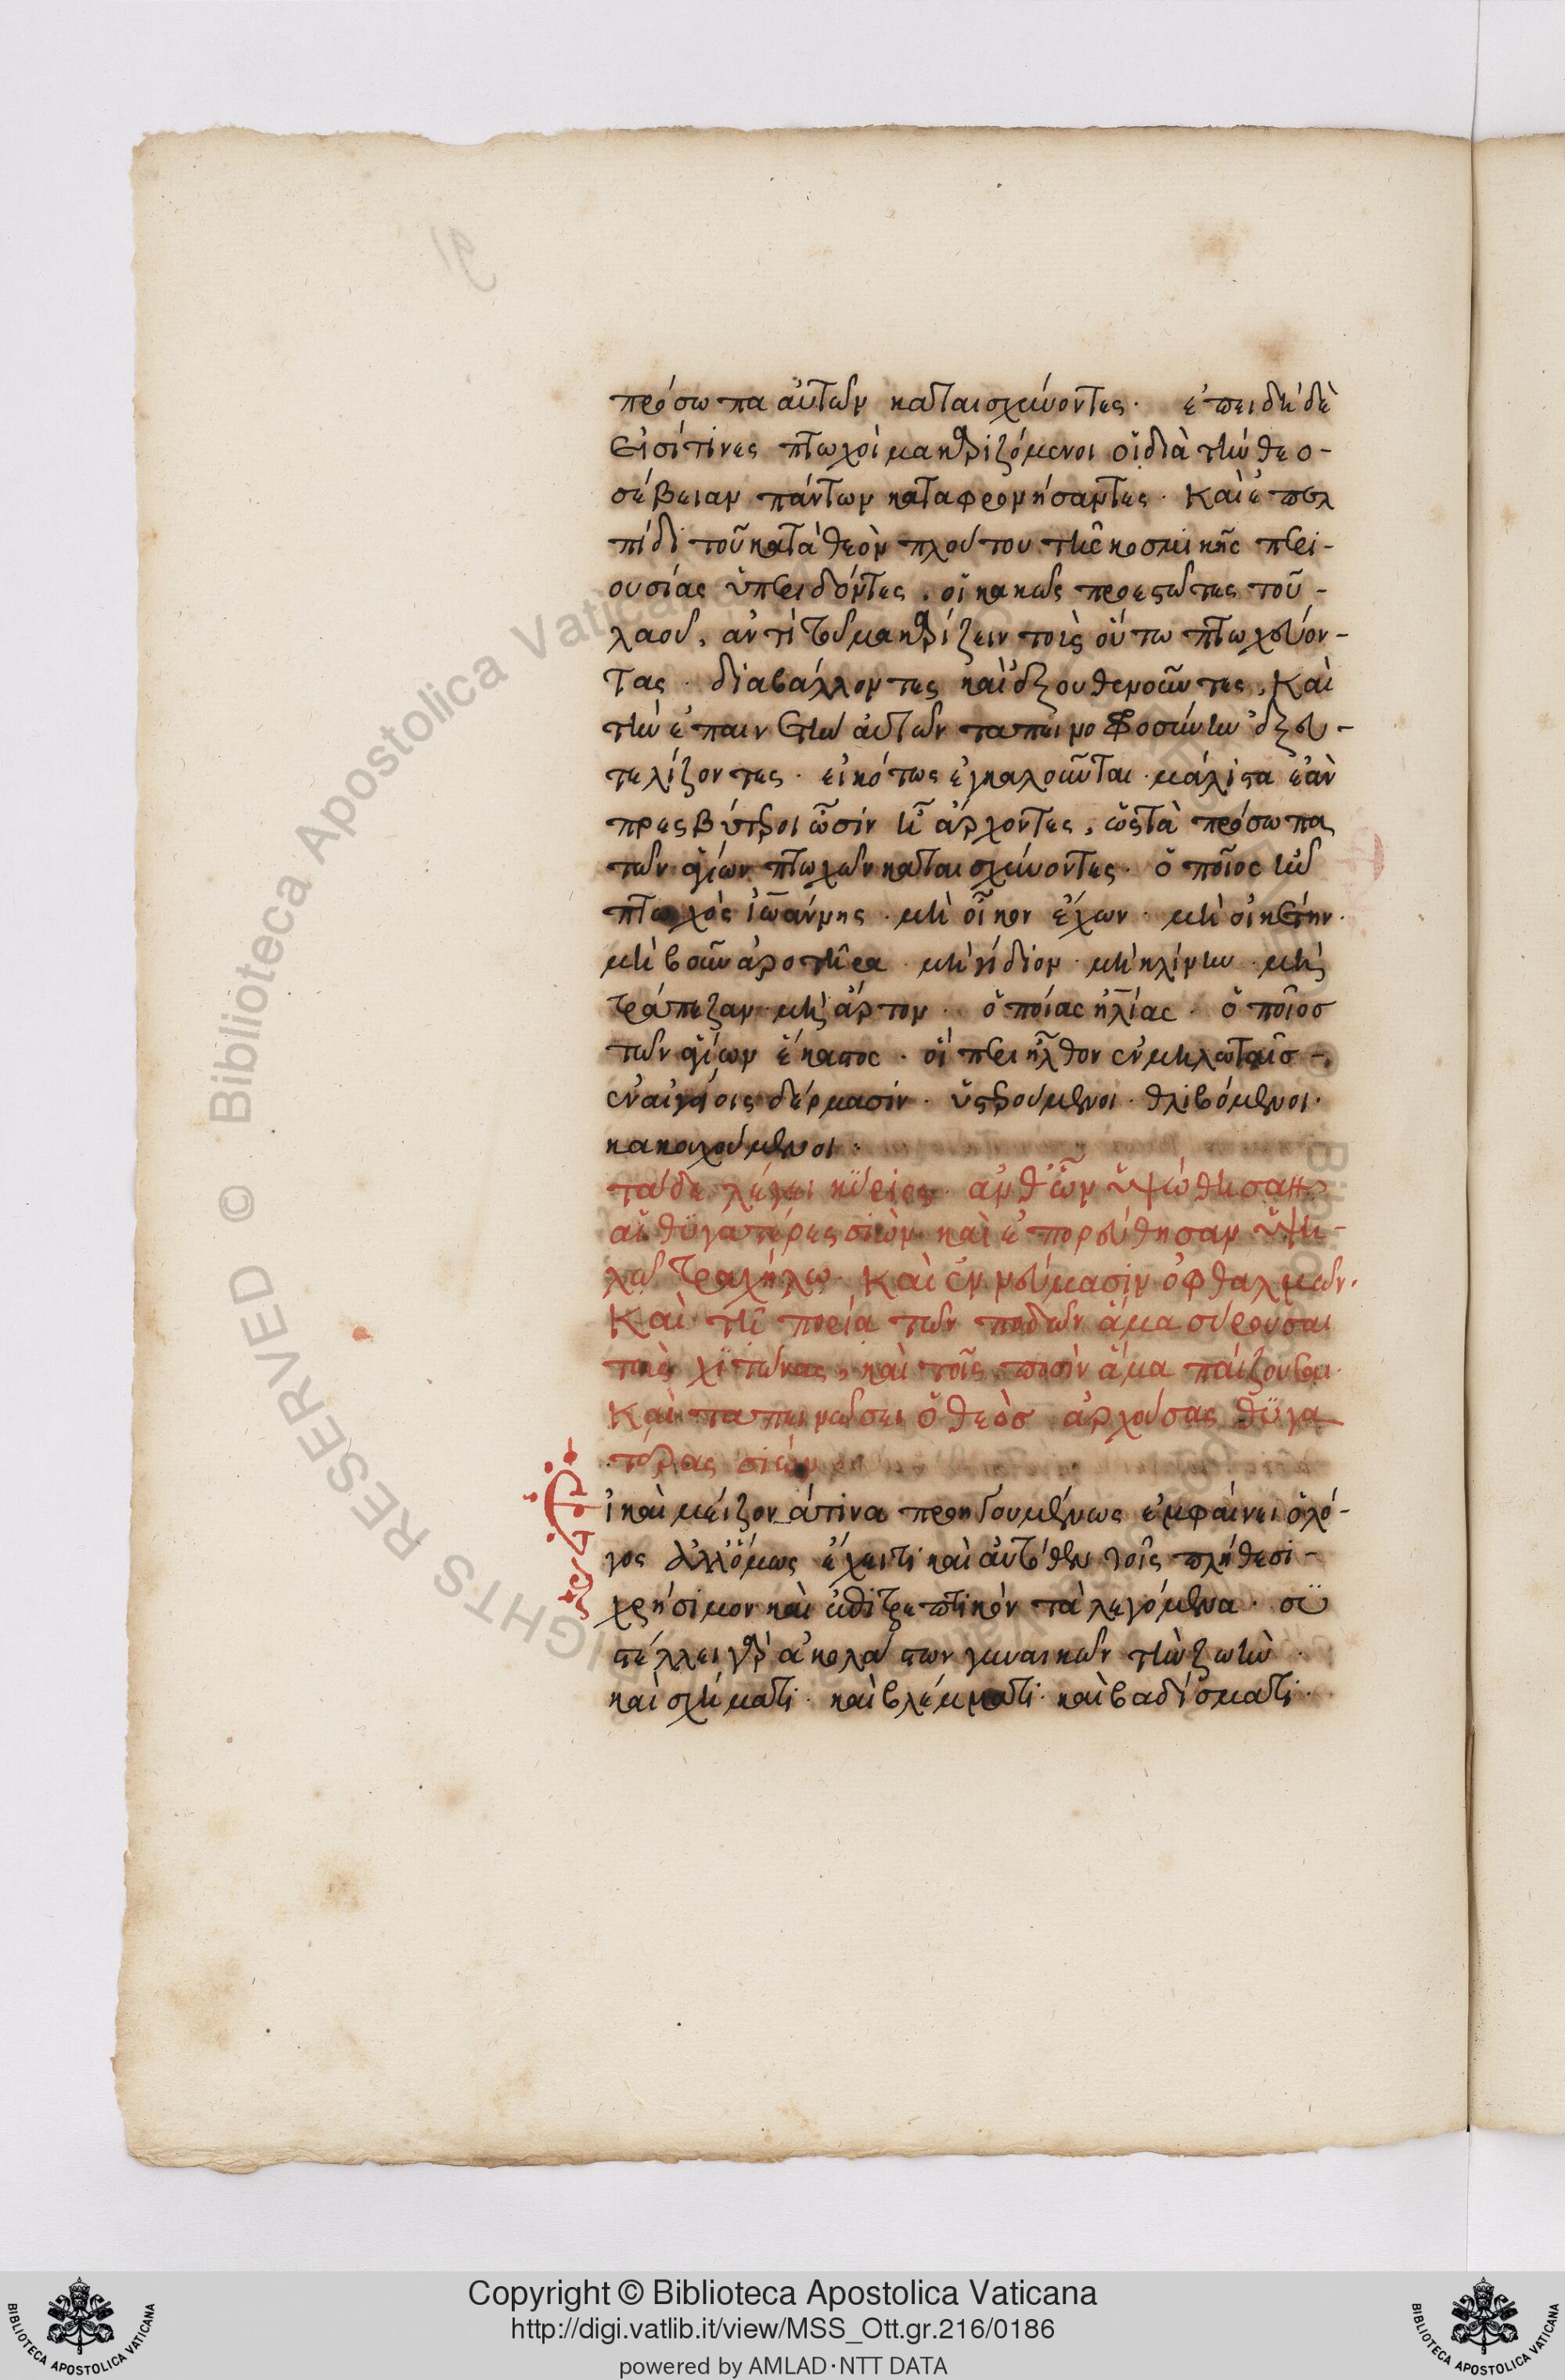 πρόσωπα αὐτῶν καταισχύνοντες· ἐπειδὴ δὲ
εἰσί τινες πτωχοὶ μακαριζόμενοι οἱ διὰ τὴν θεο-
σέβειαν πάντων καταφρονήσαντες· καὶ ἐπελ
πίδι τοῦ κατὰ θεὸν πλούτου τῆς κοσμικῆς περι-
ουσίας ὑπεριδόντες, οἱ κακῶς προεστῶτες τοῦ-
λαοῦ, ἀντὶ τοῦ μακαρίζειν τοὺς οὕτω πτωχεύον-
τας· διαβάλλοντες καὶ ἐξουθενοῦντες, καὶ
τὴν ἐπαινετὴν αὐτῶν ταπεινοφροσύνην ἐξευ-
τελίζοντες· εἰκότως ἐγκαλοῦνται· μάλιστα ἐὰν
πρεσβύτεροι ὦσιν ἢ ἄρχοντες, ὡς τὰ πρόσωπα
τῶν ἁγίων πτωχῶν καταισχύνοντες· ὁποῖος ἦν
πτωχὸς ἰωάννης· μὴ οἶκον ἔχων· μὴ οἰκέτην·
μὴ βοῦν ἀροτῆρα· μὴ γήδιον· μὴ κλίνην· μὴ
τράπεζαν· μὴ ἄρτον· ὁποίας ἠλίας· ὁποῖος
τῶν ἁγίων ἕκαστος· οἳ περιῆλθον ἐν μηλωταῖς-
ἐν αἰγείοις δέρμασιν· ὑστερούμενοι· θλιβόμενοι·
κακουχούμενοι·
τάδε λέγει κύριος· ἀνθ' ὧν ὑψώθησαν
αἱ θυγατέρες σιὼν καὶ ἐπορεύθησαν ὑψη-
λῷ τραχήλῳ· καὶ ἐν νεύμασιν ὀφθαλμῶν·
καὶ τῇ πορείᾳ τῶν ποδῶν ἅμα σύρουσαι
τοὺς χιτῶνας, καὶ τοῖς ποσὶν ἅμα παίζουσαι·
καὶ ταπεινώσει ὁ θεὸς ἀρχούσας θυγα
τέρας σιών
εἰ καὶ μεῖζον ἅτινα προηγουμένως ἐμφαίνει ὁ λό-
γος ἀλλ' ὅμως ἔχει τι καὶ αὐτόθεν τοῖς πλήθεσι-
χρήσιμον καὶ ἐπιτρεπτικὸν τὰ λεγόμενα· συ
στέλλει γὰρ ἀκολάστων γυναικῶν τὴν ζωὴν·
καὶ σχήματι· καὶ βλέμματι· καὶ βαδίσματι·
Copyright © Biblioteca Apostolica Vaticana
http://digi.vatlib.it/view/MSS_Ott.gr.216/0186
powered by AMLAD·NTT DATA
BIBLIOTECA APOSTOLICA VATICANA
BIBLIOTECA APOSTOLICA VATICANA